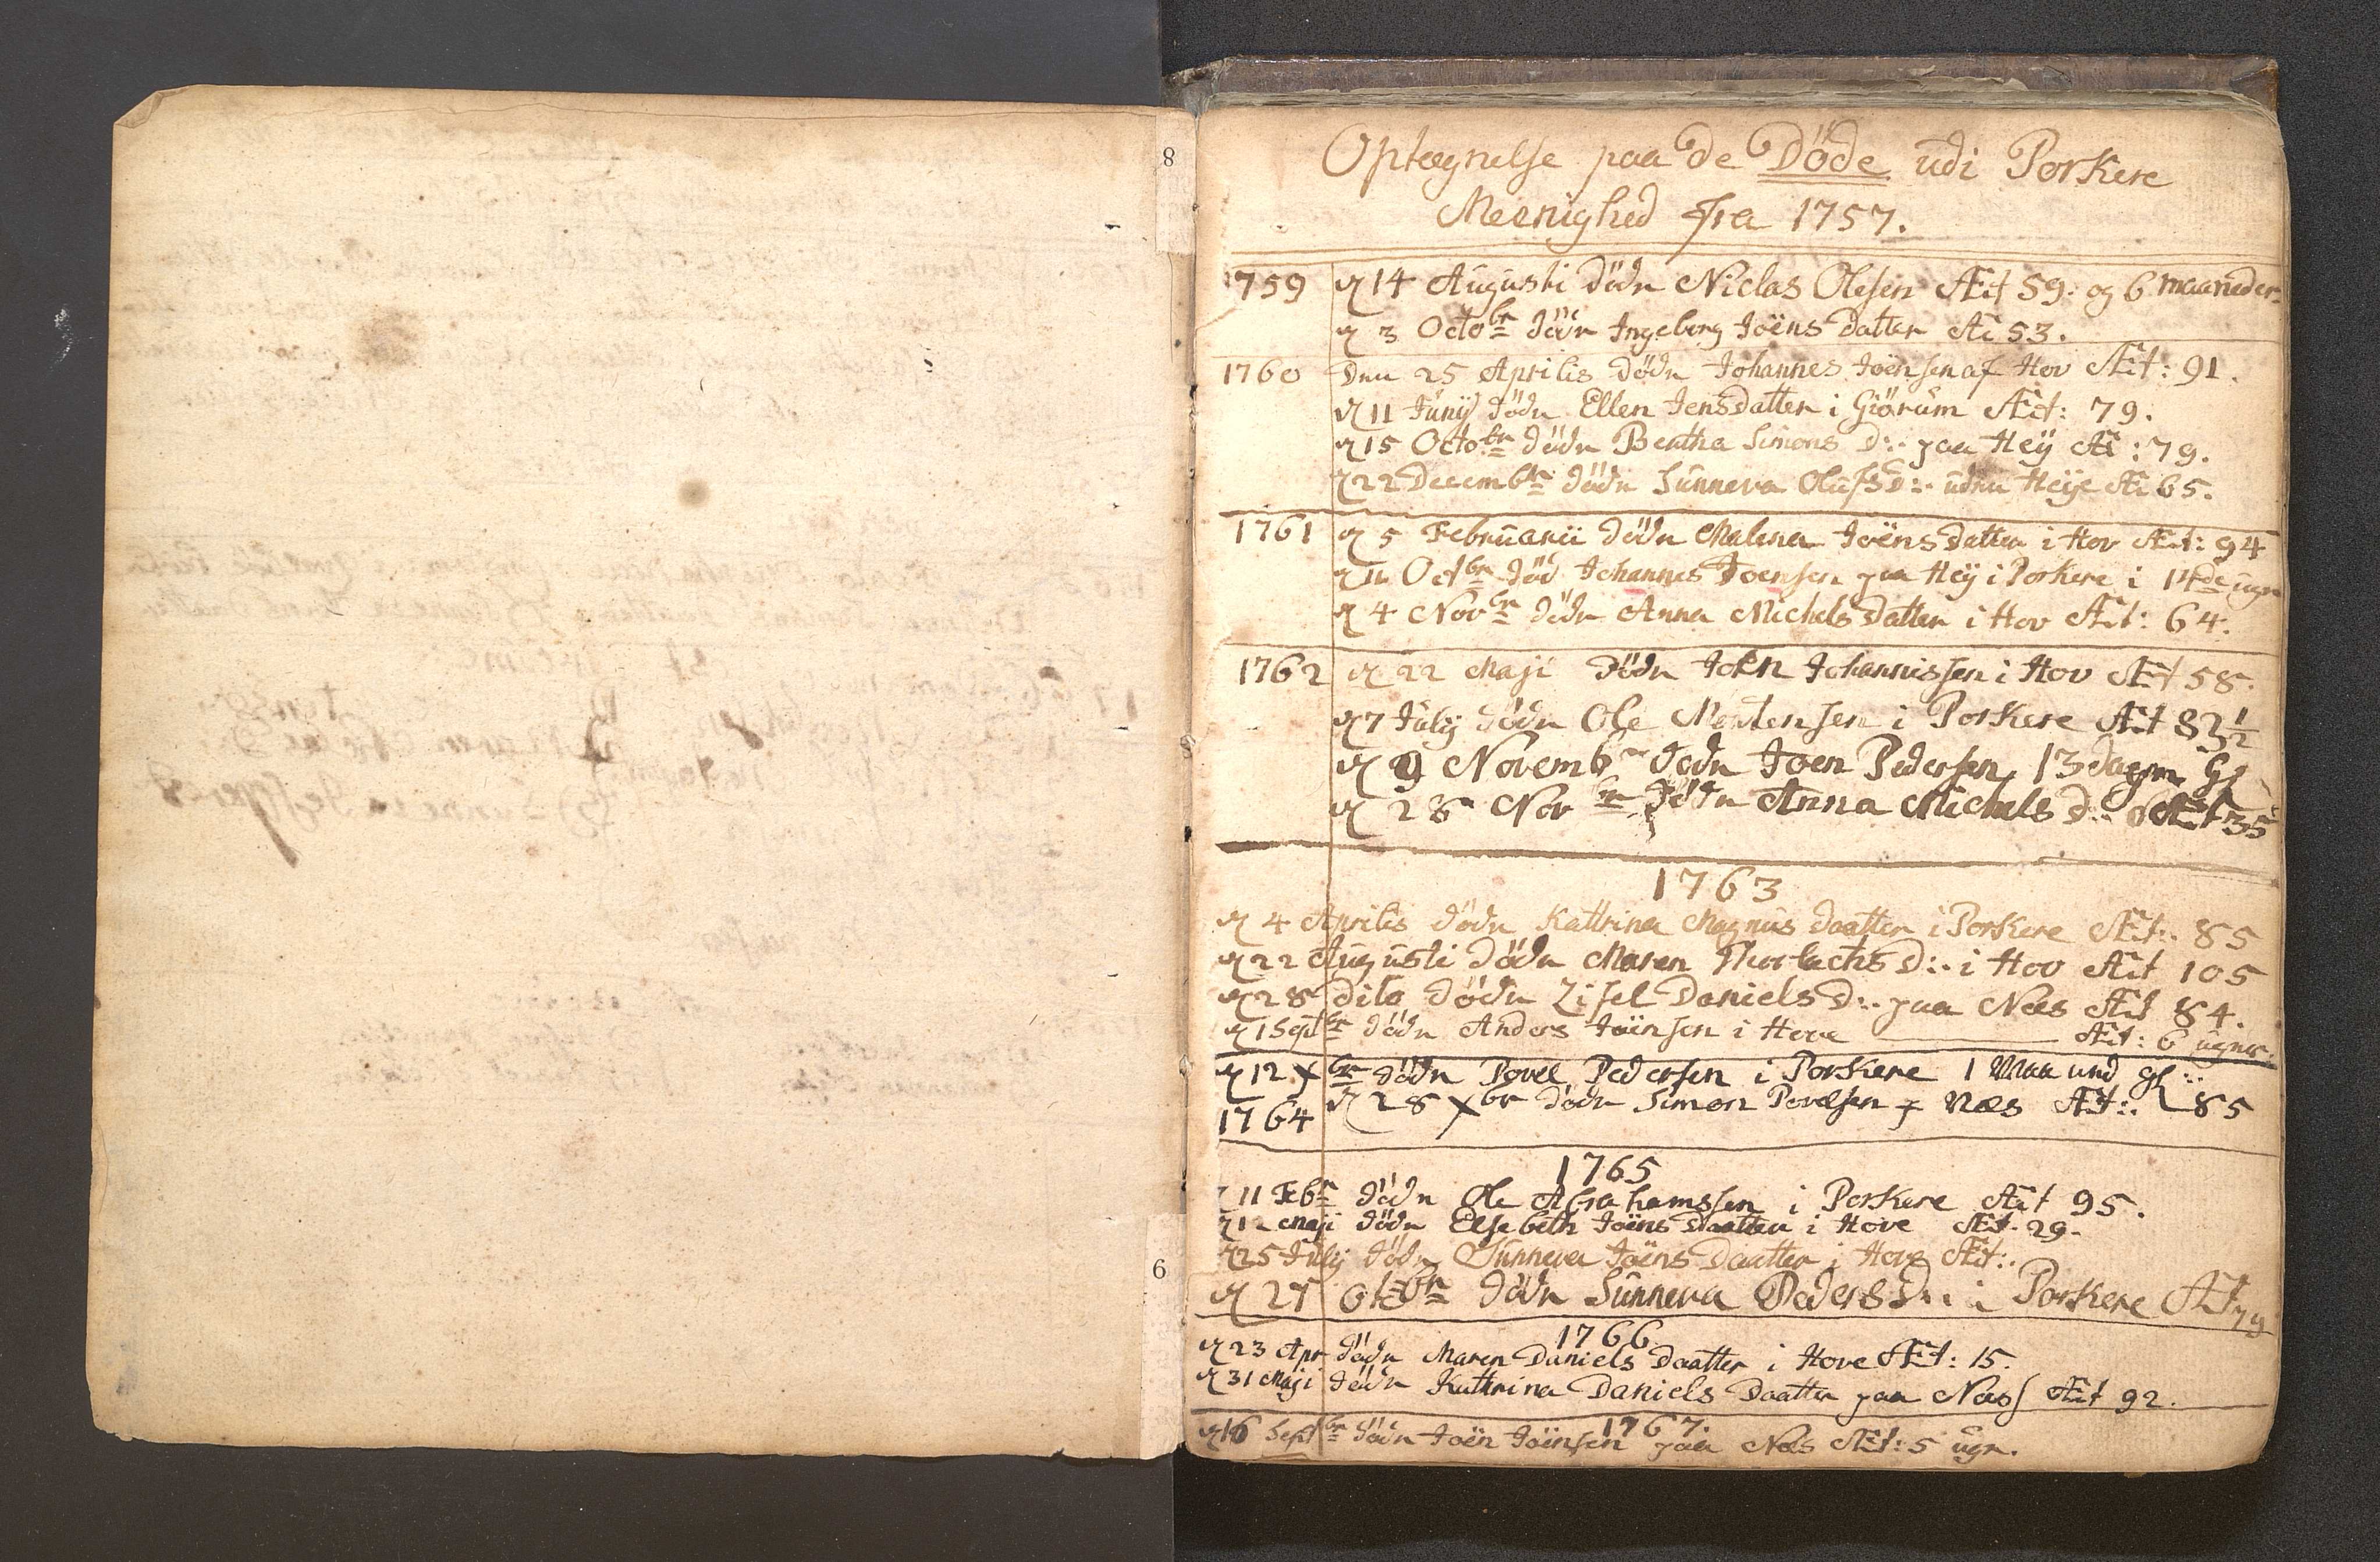 8
6
Optegnelse paa de Döde udi Porkere
Meenighed Fra 1757.
1759 d 14 Augusti döde Niclas Olesen Æt 59. og 6 maaneder
d 3 Octobr döde Ingeborg Joëns datter Æt 53.
1760 Den 25 Aprilis döde Johannes Joensen af Hov Æt: 91.
d 11 Junij döde Ellen Jensdatter i Giörum Æt: 79.
d 15 Octobr döde Bentha Simons D:. paa Heÿ Æt: 79.
d 22 Decembr döde Sunneva Olufs D:. uden Heÿe Æt 65.
1761 d 5 Februarii döde Malena Joëns datter i Hov Æt: 94
Octbr död Johannes Joensen paa Heÿ i Porkere i 14de uge
d 4 Novbr döde Anna Michels datter i Hov Æt: 64.
1762 d 22 Maji döde Joen Johannissen i Hov Æt 58.
d 7 Julij döde Ole Mortensen i Porkere Æt 82 1/2
d 9 Novembr döde Joen Pedersen 13 dage Gl
d 28 Novbr döde Anna Michels D:. Æt 35
1763
d 4 Aprilis döde Kattrina Magnus daatter i Porkere Æt:. 85
d 22 Augusti döde Maren Thorlachs D:. i Hov Æt 105
d 28 dito döde Zisel Daniels D:. paa Nees Æt 84.
d 1 Septbr döde Anders Joënsen i Hove Æt: 6 uger.
d 12 Xbr döde Povel Pedersen i Porkere 1 Maaned gl:.
1764 d 28 Xbr döde Simon Povelsen p Næs Æt:. 85
1765
d 11 Febr döde Ole Abrahamssen i Porkere Æt 95.
d 12 Maji döde Elsebeth Joëns Daatter i Hove Æt. 29.
d 25 Julij döde Sunneva Joëns Daatter i Hove Æt:.
d 27 döde Sunneva Peders D:. i Porkere Æt 79
1766
d 23 Apr döde Maren Daniels Daatter i Hove Æt: 15.
d 31 Maji döde Kathrina Daniels Daatter paa Næss Æt 92.
1767.
d 16 Septbr döde Joën Joënsen paa Næs Æt: 5 uger.